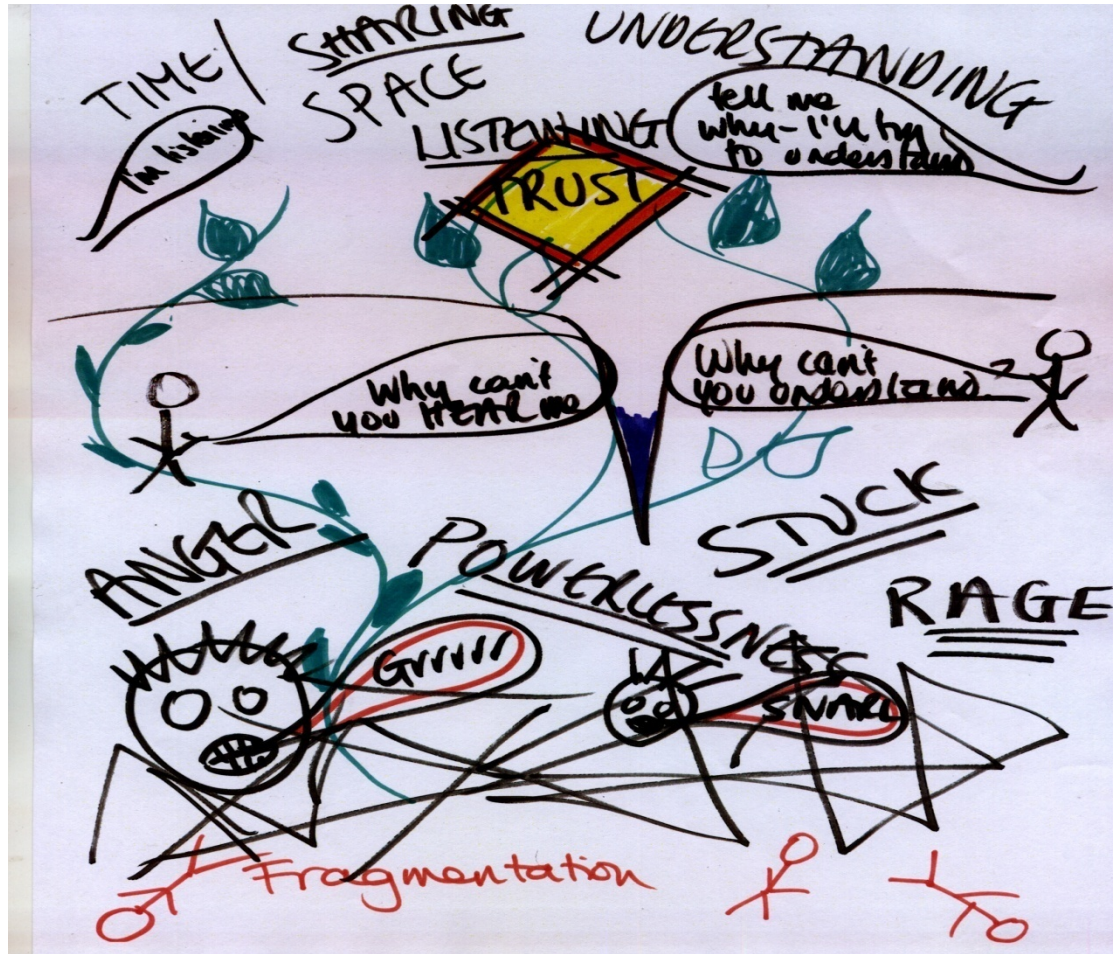 TIME/
SHARING
SPACE
UNDERSTANDING
I'm listening
LISTENING
tell me
why - I'll try
to understand
TRUST
Why can't
you HEAR me
Why can't
you understand
ANGER
POWERLESSNESS
STUCK
RAGE
Grrrrr
SNARL
Fragmentation